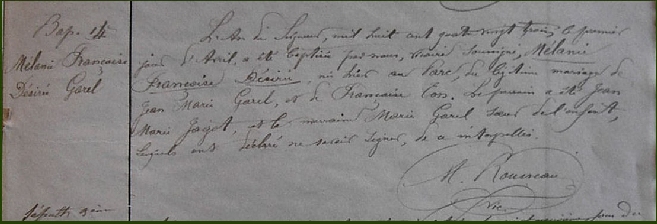 Bap. 14
Mélanie Françoise
Désirée Garel
L'An du Seigneur, mil huit cent quatre vingt trois, le premier
jour d'Avril, a été baptisée par nous, vicaire soussigné, Mélanie
Françoise Désirée, née hier au Parc, du légitime mariage de
Jean Marie Garel, et de Françoise Le parrain a été Jean
Marie Jagot, et la marraine Marie Garel sœur de l'enfant,
lesquels ont déclaré ne savoir signer, de ce interpellés.
Vic
Sépulture